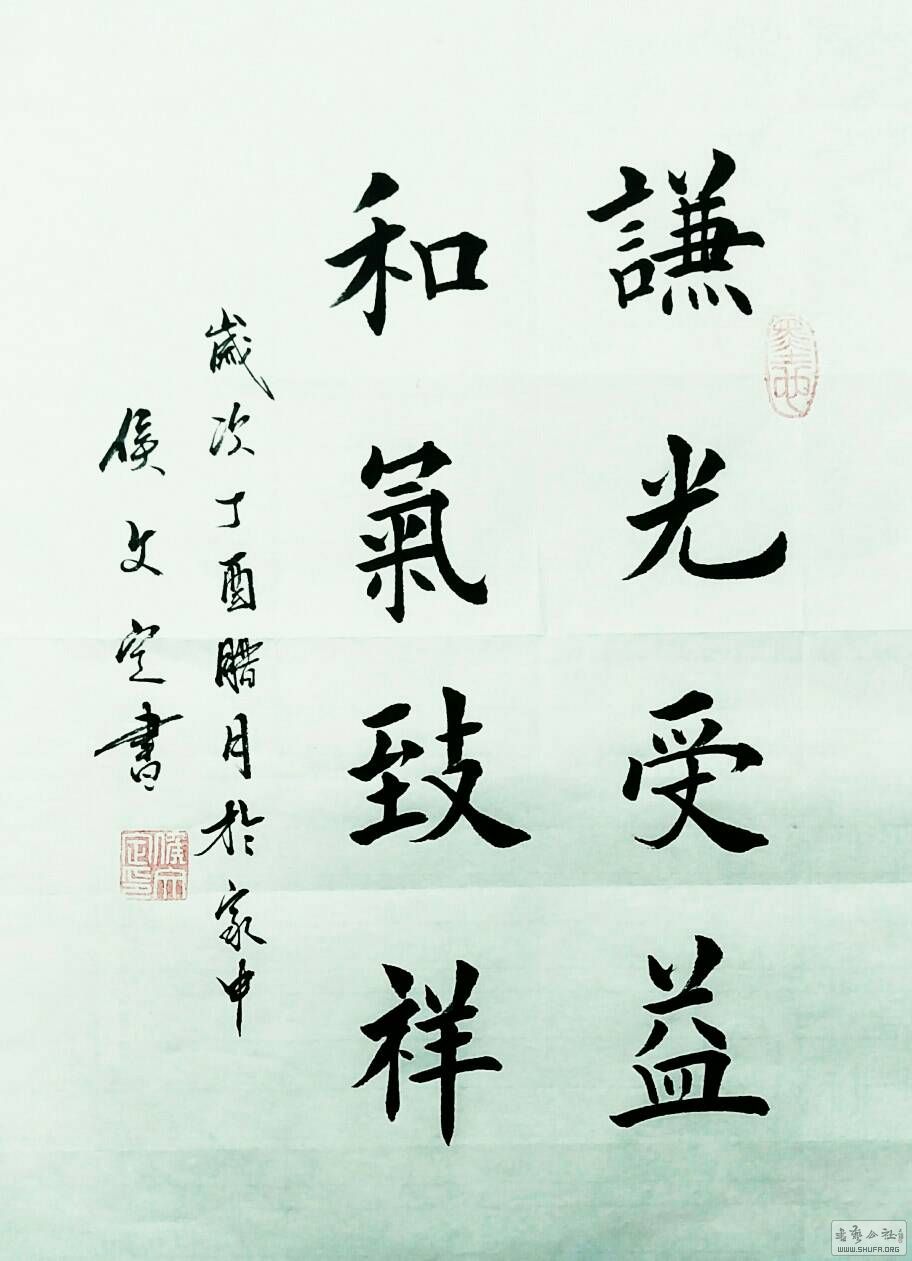 謙光受益
和氣致祥
歲次丁酉臘月於家中
侯文定書
書藝公社
WWW.SHUFA.ORG